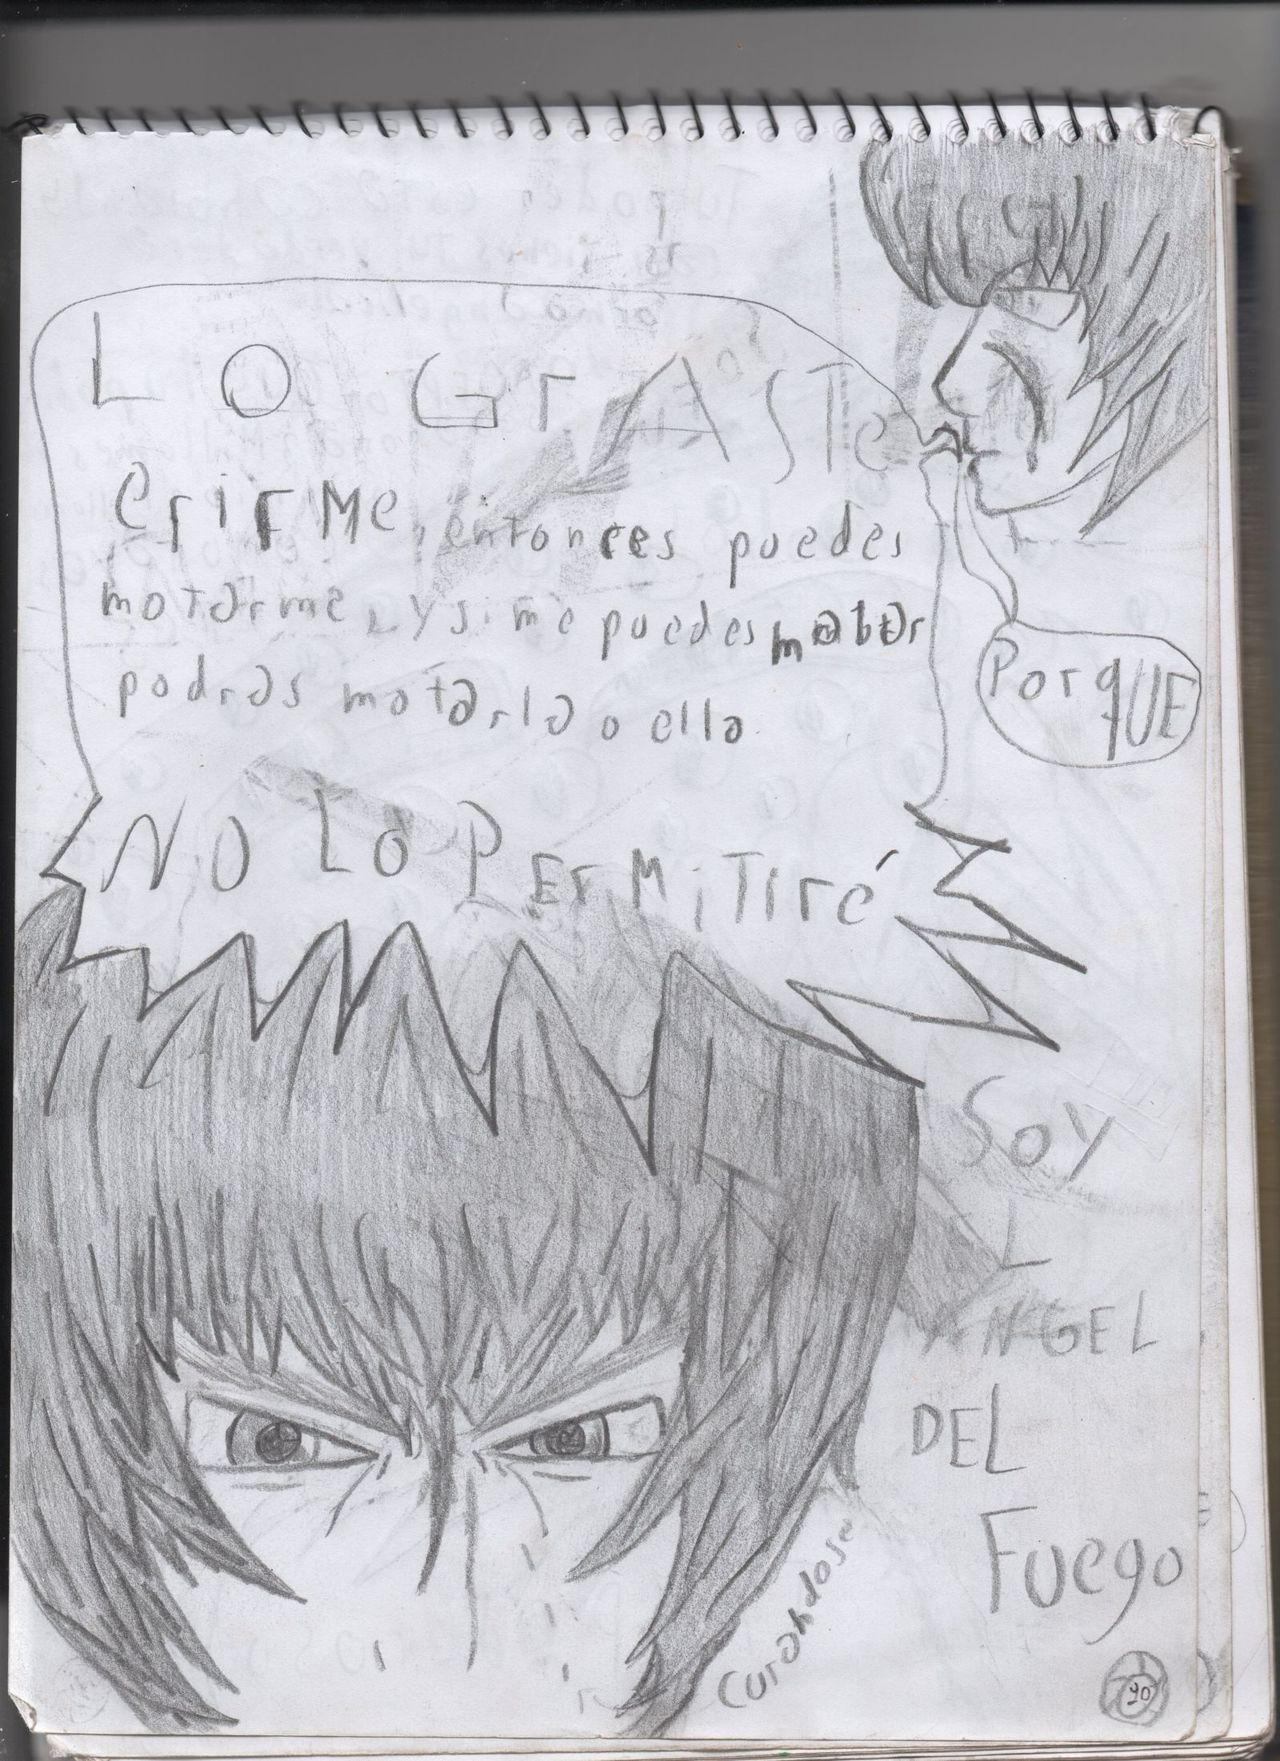 LOGrASTe
erirMe, entonces puedes
matarme, y si me puedes matar
podras matarla a ella
NO LO PErMiTiré
PorqUE
SOY
L
ANGEL
DEL
Fuego
curandose
90